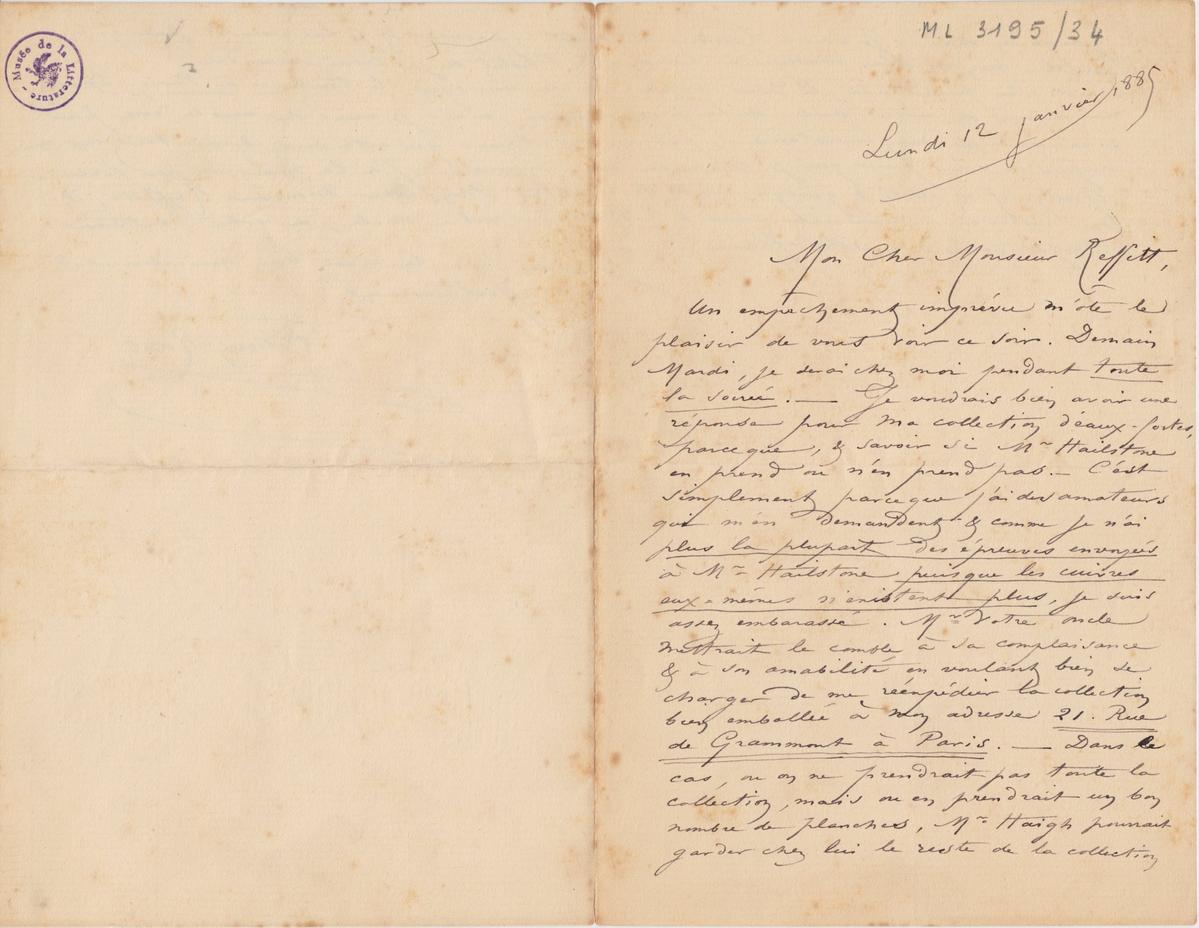 Musée de la Littérature
ML 3195/34
Lundi 12 janvier 1885
Mon Cher Monsieur Reffitt,
Un empechement imprévu m'ôte le
plaisir de vous voir ce soir. Demain
Mardi, je serai chez moi pendant toute
la soirée. — Je voudrais bien avoir une
réponse pour ma collection d'eaux-fortes,
parce que, & savoir si Mr Hailstone
en prend ou n'en prend pas. — C'est
simplement parceque j'ai des amateurs
qui m'en demandent & comme je n'ai
plus la plupart des épreuves envoyées
à Mr Hailstone puisque les cuivres
eux-mêmes n'existent plus, je suis
assez embarassé. Mr Votre oncle
mettrait le comble à sa complaisance
& à son amabilité en voulant bien se
charger de me réexpédier la collection
bien emballée à mon adresse 21. Rue
de Grammont à Paris. — Dans le
cas, ou on ne prendrait pas toute la
collection, mais ou en prendrait un bon
nombre de planches, Mr Haigh pourrait
garder chez lui le reste de la collection